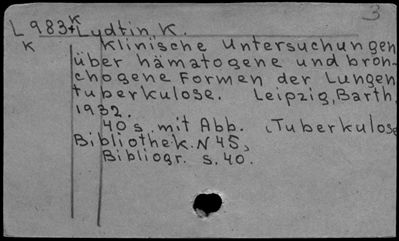 3
L 983 K + Lydtin, K.
K Klinische Untersuchungen
über hämatogene und bron-
chogene Formen der Lungen
tuberkulose. Leipzig, Barth,
1932.
40 s mit Abb. (Tuberkulose
Bibliothek. N 45,
Bibliogr. s. 40.